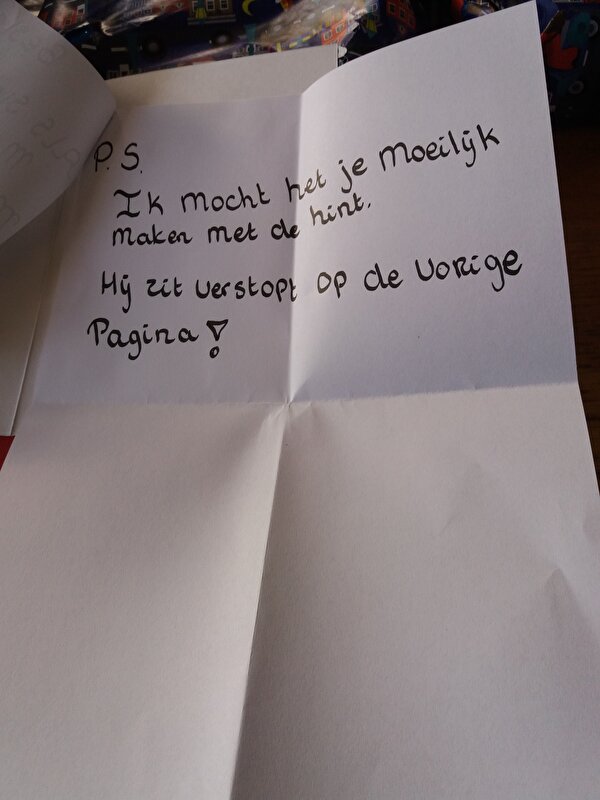 P.S.
Ik mocht het je moeilijk
maken met de hint.
Hij zit verstopt op de vorige
Pagina!